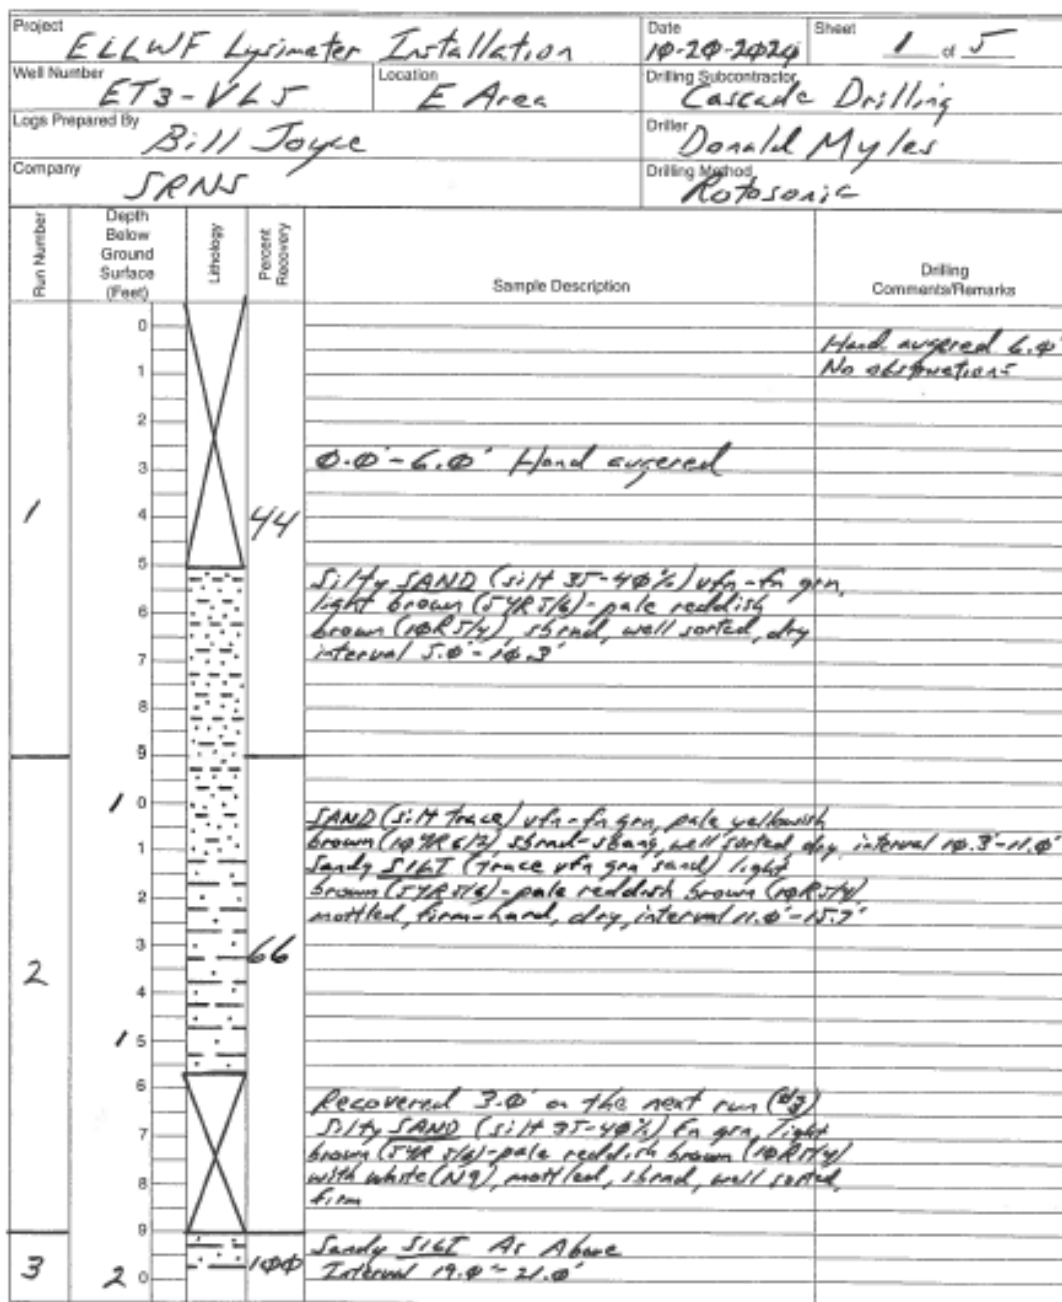 Project
ELLWF Lysimeter Installation
Date
10-20-2020
Sheet
1 of 5
Well Number
ET3-VL5
Location
E Area
Drilling Subcontractor
Cascade Drilling
Logs Prepared By
Bill Joyce
Driller
Donald Myles
Company
SRNS
Drilling Method
Rotosonic
Run Number
Depth
Below
Ground
Surface
(Feet)
Lithology
Percent
Recovery
Sample Description
Drilling
Comments/Remarks
0
Hand augered 6.0'
1
No obstructions
2
0.0'-6.0' Hand augered
3
1
4
44
5
Silty SAND (silt 35-40%) vfn-fn grn,
light brown (5YR 5/6)-pale reddish
6
brown (10R 5/4), sbrnd, well sorted, dry
interval 5.0'-10.3'
7
8
9
1 0
SAND (silt trace) vfn-fn grn, pale yellowish
brown (10YR 6/2), sbrnd-sbang, well sorted, dry, interval 10.3'-11.0'
1
Sandy SILT (trace vfn grn sand) light
brown (5YR 5/6)-pale reddish brown (10R 5/4)
2
mottled, firm-hard, dry, interval 11.0'-15.7'
3
66
2
4
1 5
6
Recovered 3.0' on the next run (#3)
Silty SAND (silt 35-40%) fn grn, light
7
brown (5YR 5/6)-pale reddish brown (10R 5/4)
with white (N9), mottled, sbrnd, well sorted,
8
firm
9
Sandy SILT As Above
3
100
Interval 19.0'-21.0'
2 0